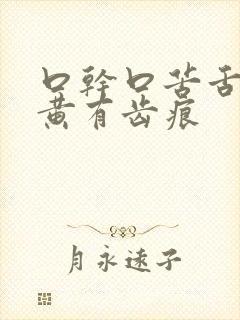 口幹口苦舌
黄有齿痕
月永远子